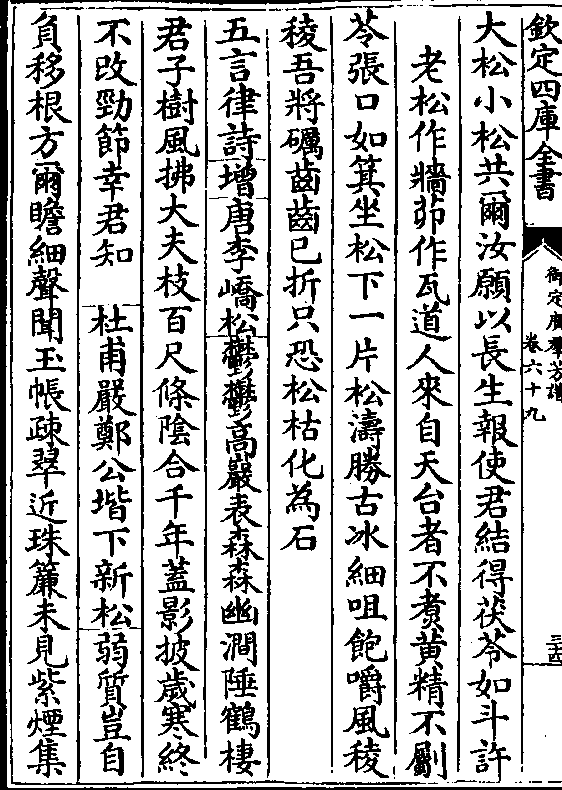 欽定四庫全書
御定廣羣芳譜
卷六十九
三十四
大松小松共爾汝願以長生報使君結得茯苓如斗許
老松作牆茆作瓦道人來自天台者不煑黄精不劚
苓張口如箕坐松下一片松濤勝古冰細咀飽嚼風稜
稜吾將礪齒齒已折只恐松枯化為石
五言律詩增唐李嶠松鬱鬱高巖表森森幽澗陲鶴棲
君子樹風拂大夫枝百尺條陰合千年蓋影披歲寒終
不改勁節幸君知 杜甫嚴鄭公堦下新松弱質豈自
負移根方爾瞻細聲聞玉帳疎翠近珠簾未見紫煙集